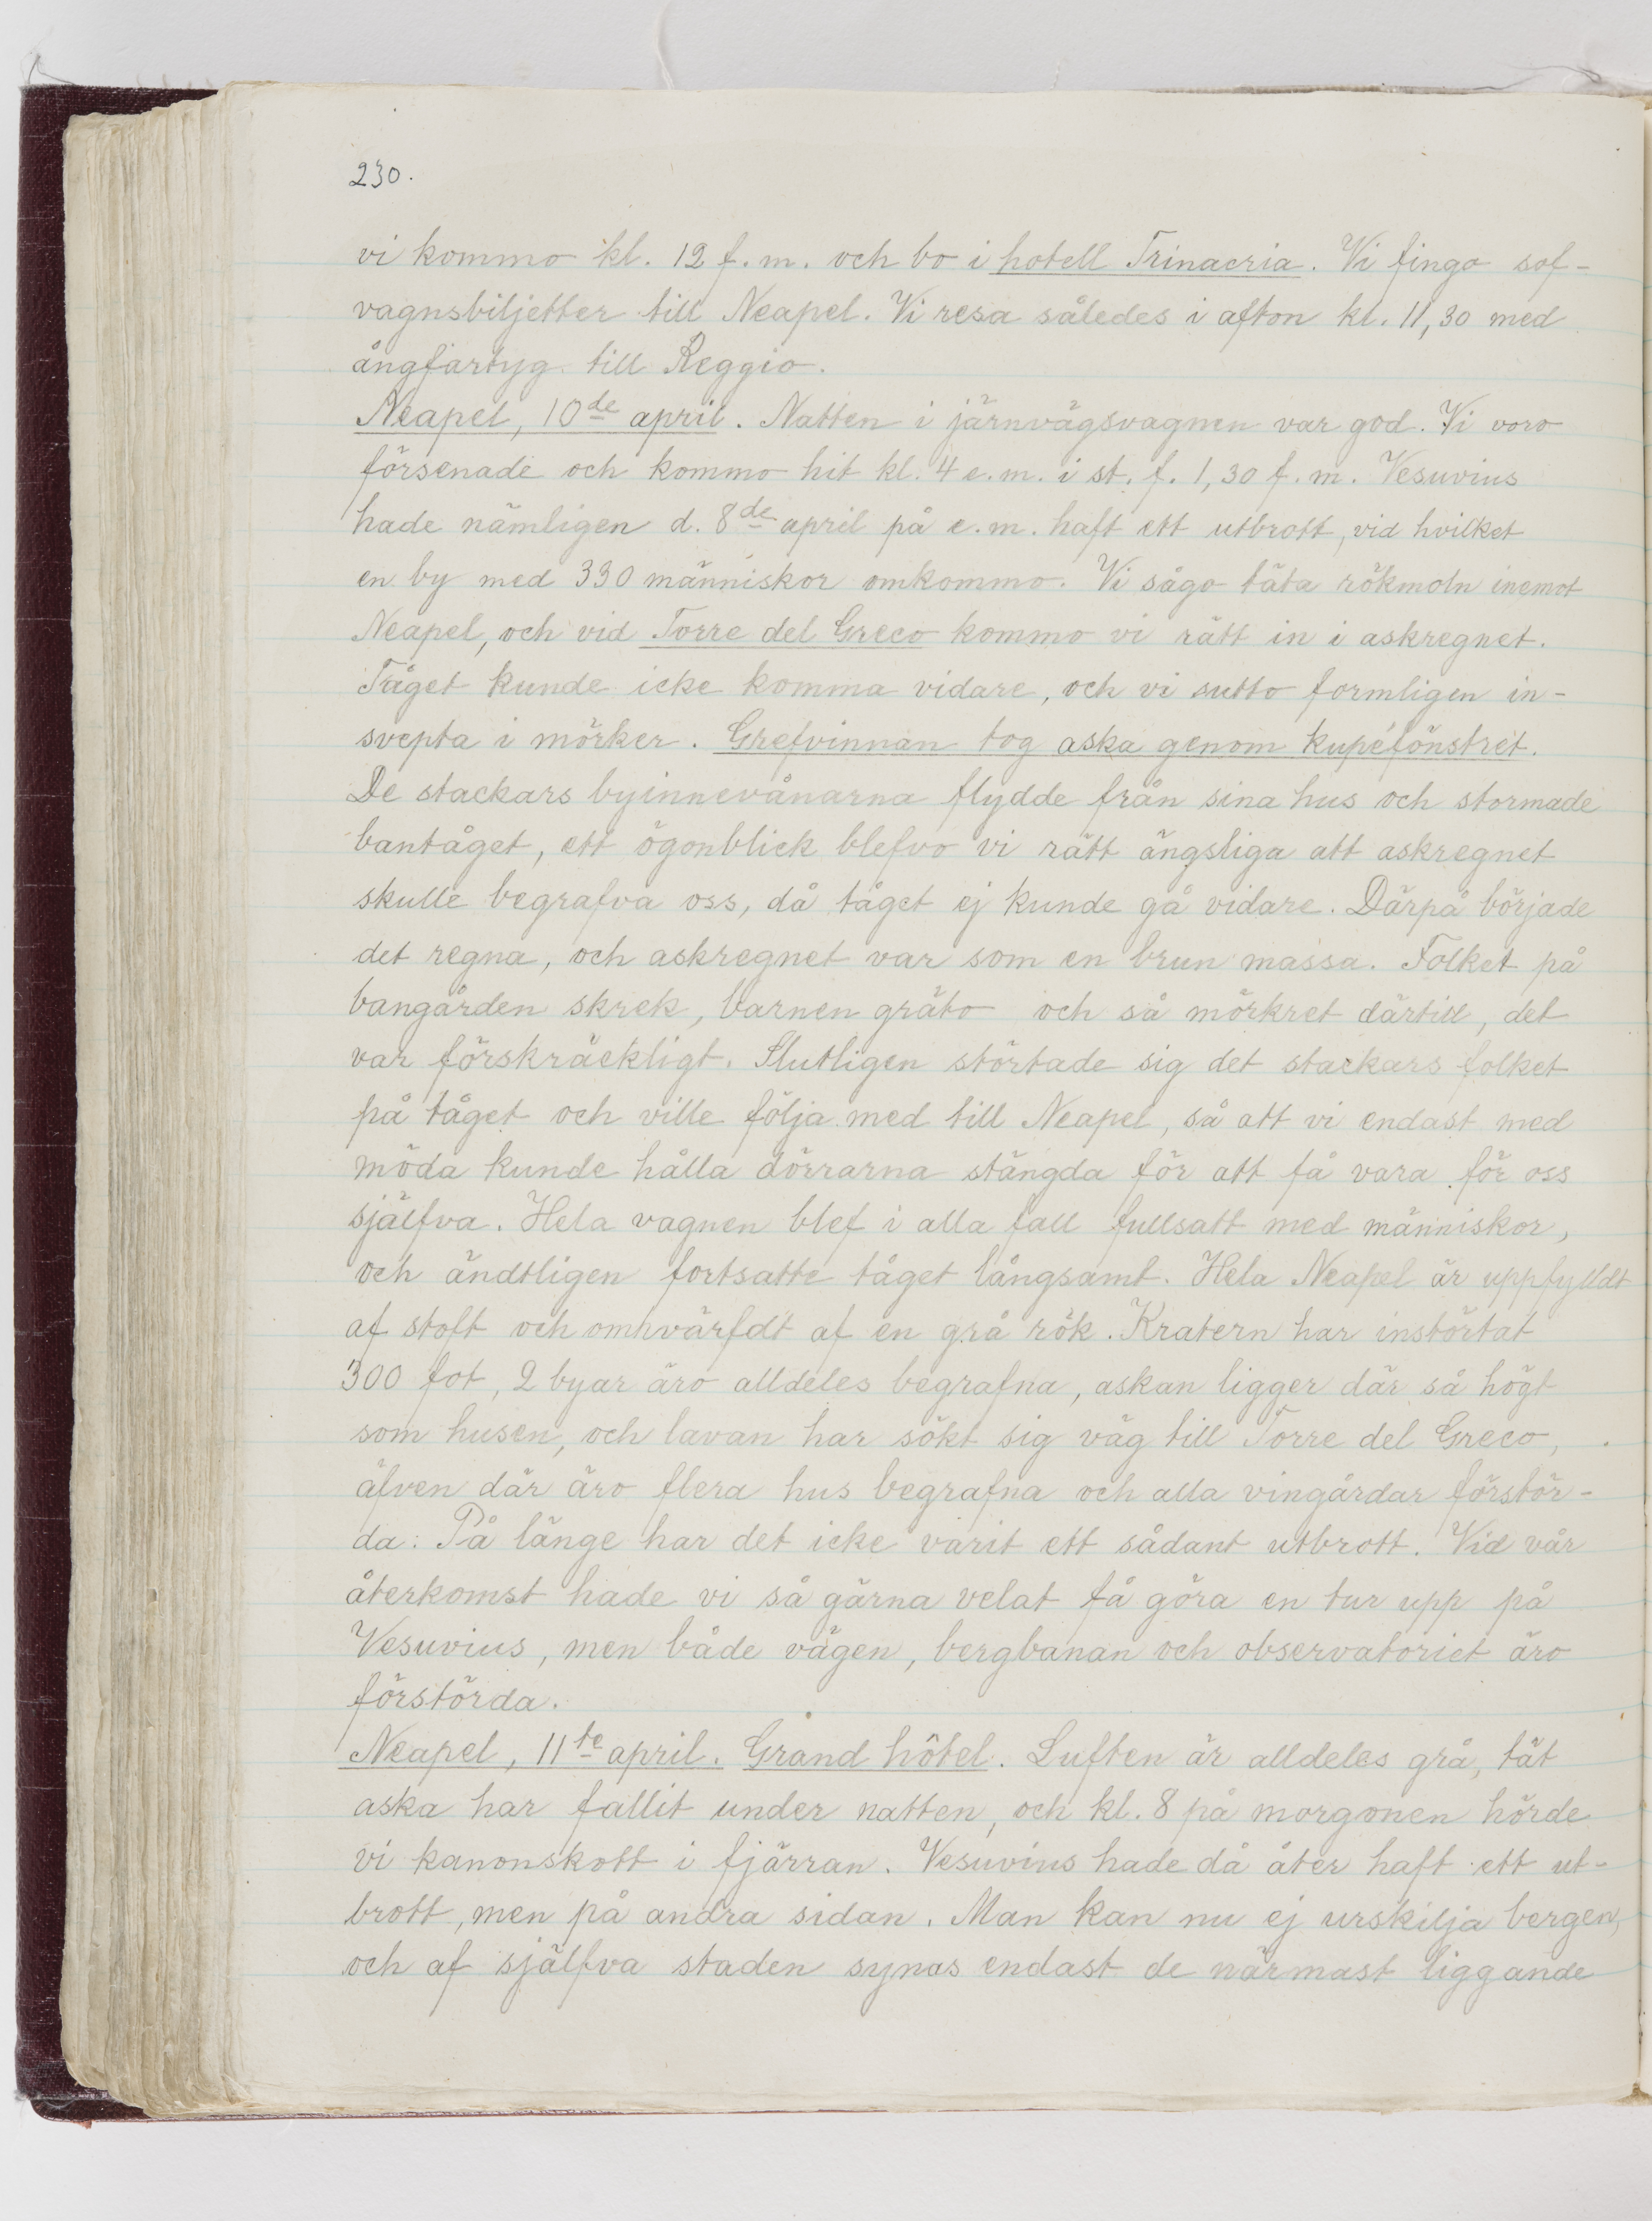 230.
vi kommo kl. 12 f. m. och bo i hotell Trinacria. Vi fingo sof-
vagnsbiljetter till Neapel. Vi resa således i afton kl. 11,30 med
ångfartyg till Reggio.
Neapel, 10de april. Natten i järnvägsvagnen var god. Vi voro
försenade och kommo hit kl. 4 e. m. i st. f. 1,30 f. m. Vesuvius
hade nämligen d. 8de april på e. m. haft ett utbrott, vid hvilket
en by med 330 människor omkommo. Vi sågo täta rökmoln inemot
Neapel, och vid Torre del Greco kommo vi rätt in i askregnet.
Tåget kunde icke komma vidare, och vi sutto formligen in-
svepta i mörker. Grefvinnan tog aska genom kupéfönstret.
De stackars byinnevånarna flydde från sina hus och stormade
bantåget, ett ögonblick blefvo vi rätt ängsliga att askregnet
skulle begrafva oss, då tåget ej kunde gå vidare. Därpå började
det regna, och askregnet var som en brun massa. Folket på
bangården skrek, barnen gräto och så mörkret därtill, det
var förskräckligt. Slutligen störtade sig det stackars folket
på tåget och ville följa med till Neapel, så att vi endast med
möda kunde hålla dörrarna stängda för att få vara för oss
själfva. Hela vagnen blef i alla fall fullsatt med människor,
och ändtligen fortsatte tåget långsamt. Hela Neapel är uppfylldt
af stoft och omhvärfdt af en grå rök. Kratern har instörtat
300 fot, 2 byar äro alldeles begrafna, askan ligger där så högt
som husen, och lavan har sökt sig väg till Torre del Greco,
äfven där äro flera hus begrafna och alla vingårdar förstör-
da. På länge har det icke varit ett sådant utbrott. Vid vår
återkomst hade vi så gärna velat få göra en tur upp på
Vesuvius, men både vägen, bergbanan och observatoriet äro
förstörda.
Neapel, 11te april. Grand hôtel. Luften är alldeles grå, tät
aska har fallit under natten, och kl. 8 på morgonen hörde
vi kanonskott i fjärran. Vesuvius hade då åter haft ett ut-
brott, men på andra sidan. Man kan nu ej urskilja bergen,
och af själfva staden synas endast de närmast liggande